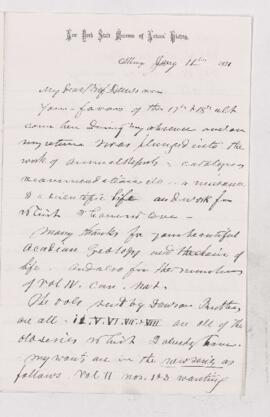 New York State Museum of Natural History,
Albany Jany 11th 1871
My dear Prof Dawson
Your favors of the 17th & 18th ult
came here during my absence and on
my return I was plunged into the
work of annual reports & catalogues
recommendations etc — a nuisance
to a scientific life and work for
which
Many thanks for your beautiful
Acadian Geology and the chain of
life. And also for the numbers
of Vol IV. Can. Nat.
The vols sent by Dawson Brothers
are all II. V. VI. VII. & VIII are all of the
old series which I already have.
my wants are in the new series as
follows Vol II nos. 1 & 3 wanting